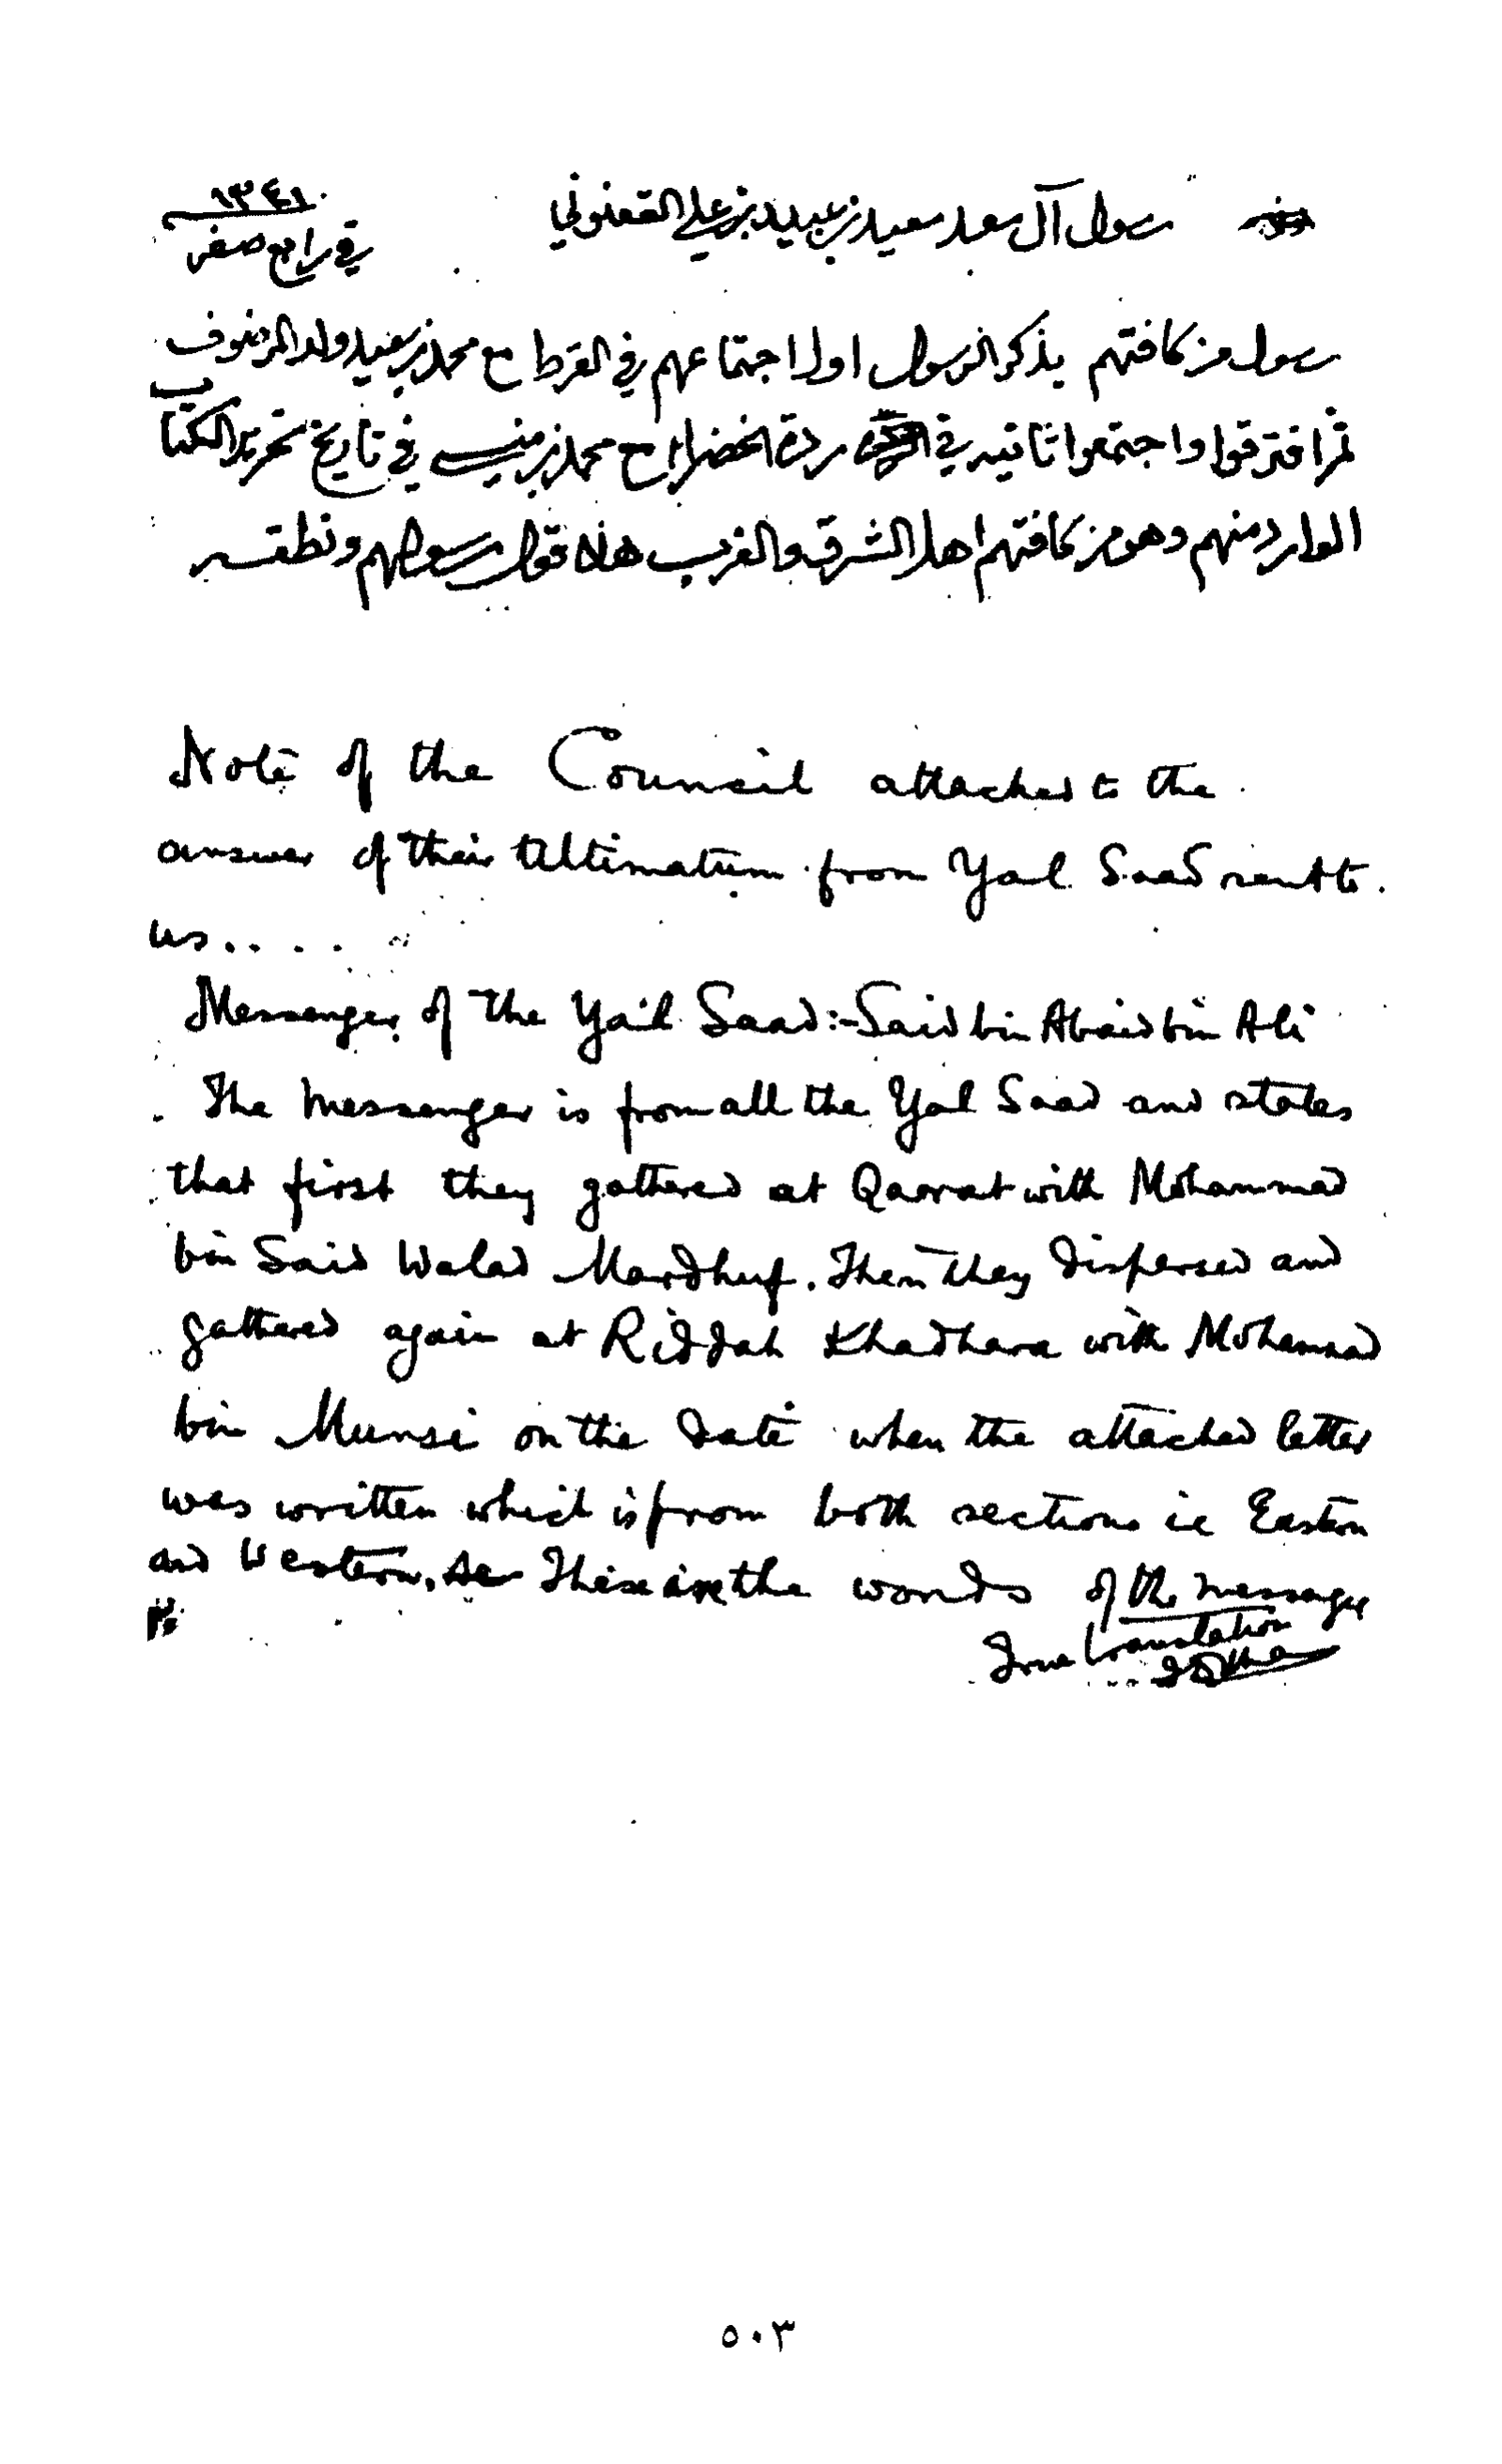 رسول آل سعد سعيد بن عبيد بن علي القعنوني
١٣٤١
في رابع صفر
رسول من كافتهم يذكر الرسول اولا اجتماعهم في القرط مع محمد بن سعيد ولد المرضوف
ثم افترقوا واجتمعوا ثانيه في ردة الخضراء مع محمد بن منسي في تاريخ تحرير الكتاب
الوارد منهم وهو من كافتهم اهل الشرق والغرب هذا قول رسولهم ونطقه
Note of the Council attached to the
answer of their Ultimatum from Yal Saad sent to
us....
Messenger of the Yal Saad:- Said bin Abaid bin Ali
The messenger is from all the Yal Saad and states
that first they gathered at Qaarat with Mohammad
bin Said Walad Mardhuf. Then they dispersed and
gathered again at Riddah Khadhara with Mohamad
bin Munsi on the date when the attached letter
was written which is from both sections ie Eastern
and Western. These are the words of the messenger
True translation
٥٠٣